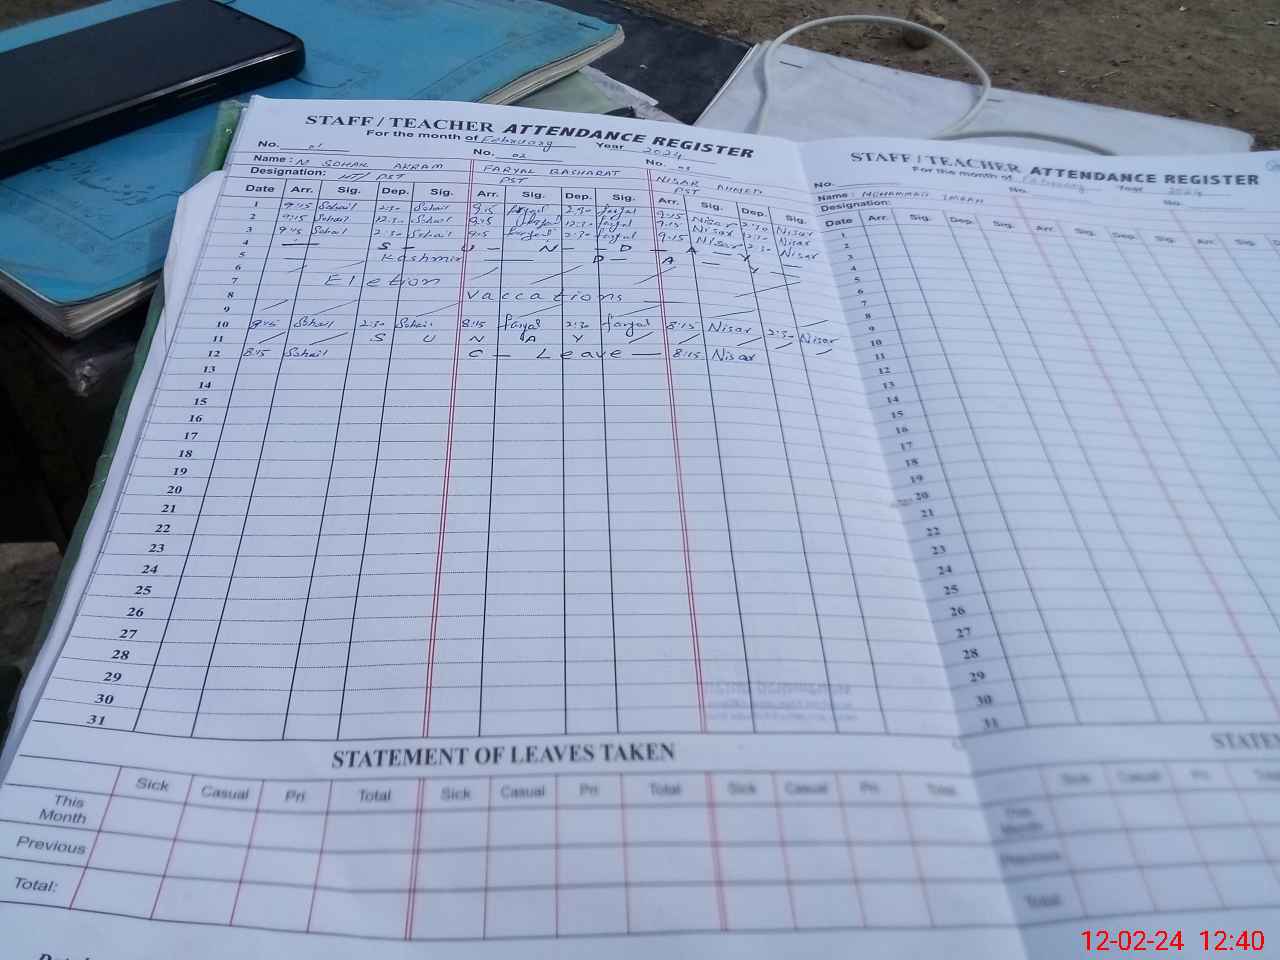 STAFF / TEACHER ATTENDANCE REGISTER
For the month of February Year 2024
No. 01 No. 02 No. 03
Name: M SOHAIL AKRAM FARYAL BASHARAT NISAR AHMED
Designation: HT/ PST PST PST
Date Arr. Sig. Dep. Sig. Arr. Sig. Dep. Sig. Arr. Sig. Dep. Sig.
1 9:15 Sohail 2:30 Sohail 9:15 faryal 2:30 faryal 9:15 Nisar 2:30 Nisar
2 9:15 Sohail 12:30 Sohail 9:15 faryal 12:30 faryal 9:15 Nisar 12:30 Nisar
3 9:15 Sohail 2:30 Sohail 9:15 faryal 2:30 faryal 9:15 Nisar 2:30 Nisar
4 — S — U — N — D — A — Y
5 — Kashmir — D — A — Y —
6
7 Eletion
8 Vaccations
9
10 9:15 Sohail 2:30 Sohail 8:15 faryal 2:30 faryal 8:15 Nisar 2:30 Nisar
11 S U N D A Y
12 8:15 Sohail C — Leave — 8:15 Nisar
13
14
15
16
17
18
19
20
21
22
23
24
25
26
27
28
29
30
31
STATEMENT OF LEAVES TAKEN
Sick Casual Pri Total Sick Casual Pri Total Sick Casual Pri Total
This Month
Previous
Total:
STAFF / TEACHER ATTENDANCE REGISTER
For the month of February Year 2024
No. No. No.
Name: MOHAMMAD IMRAN
Designation:
Date Arr. Sig. Dep. Sig. Arr. Sig. Dep. Sig. Arr. Sig.
1
2
3
4
5
6
7
8
9
10
11
12
13
14
15
16
17
18
19
20
21
22
23
24
25
26
27
28
29
30
31
Sick Casual Pri
This Month
Previous
Total
12-02-24 12:40